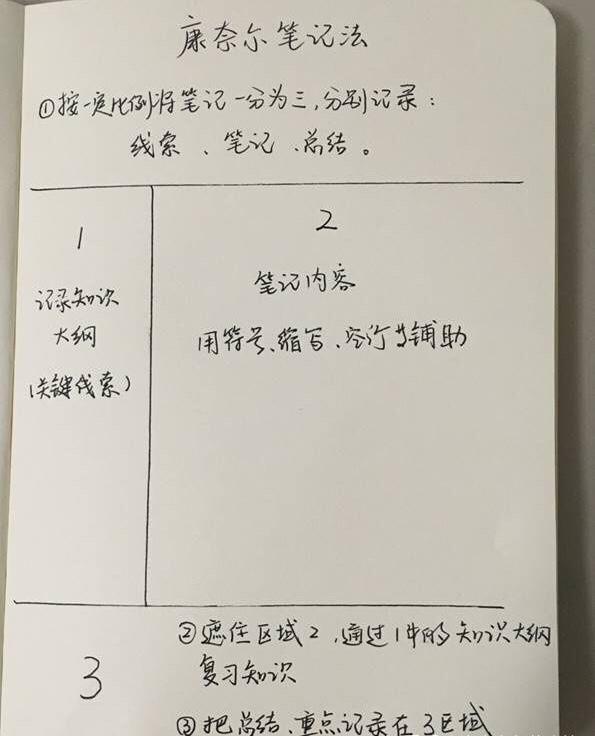 康奈尔笔记法
①按一定比例将笔记一分为三，分别记录：
线索、笔记、总结。
1
记录知识
大纲
（关键线索）
2
笔记内容
用符号、缩写、空行等辅助
3
②遮住区域2，通过1中的知识大纲
复习知识
③把总结、重点记录在3区域